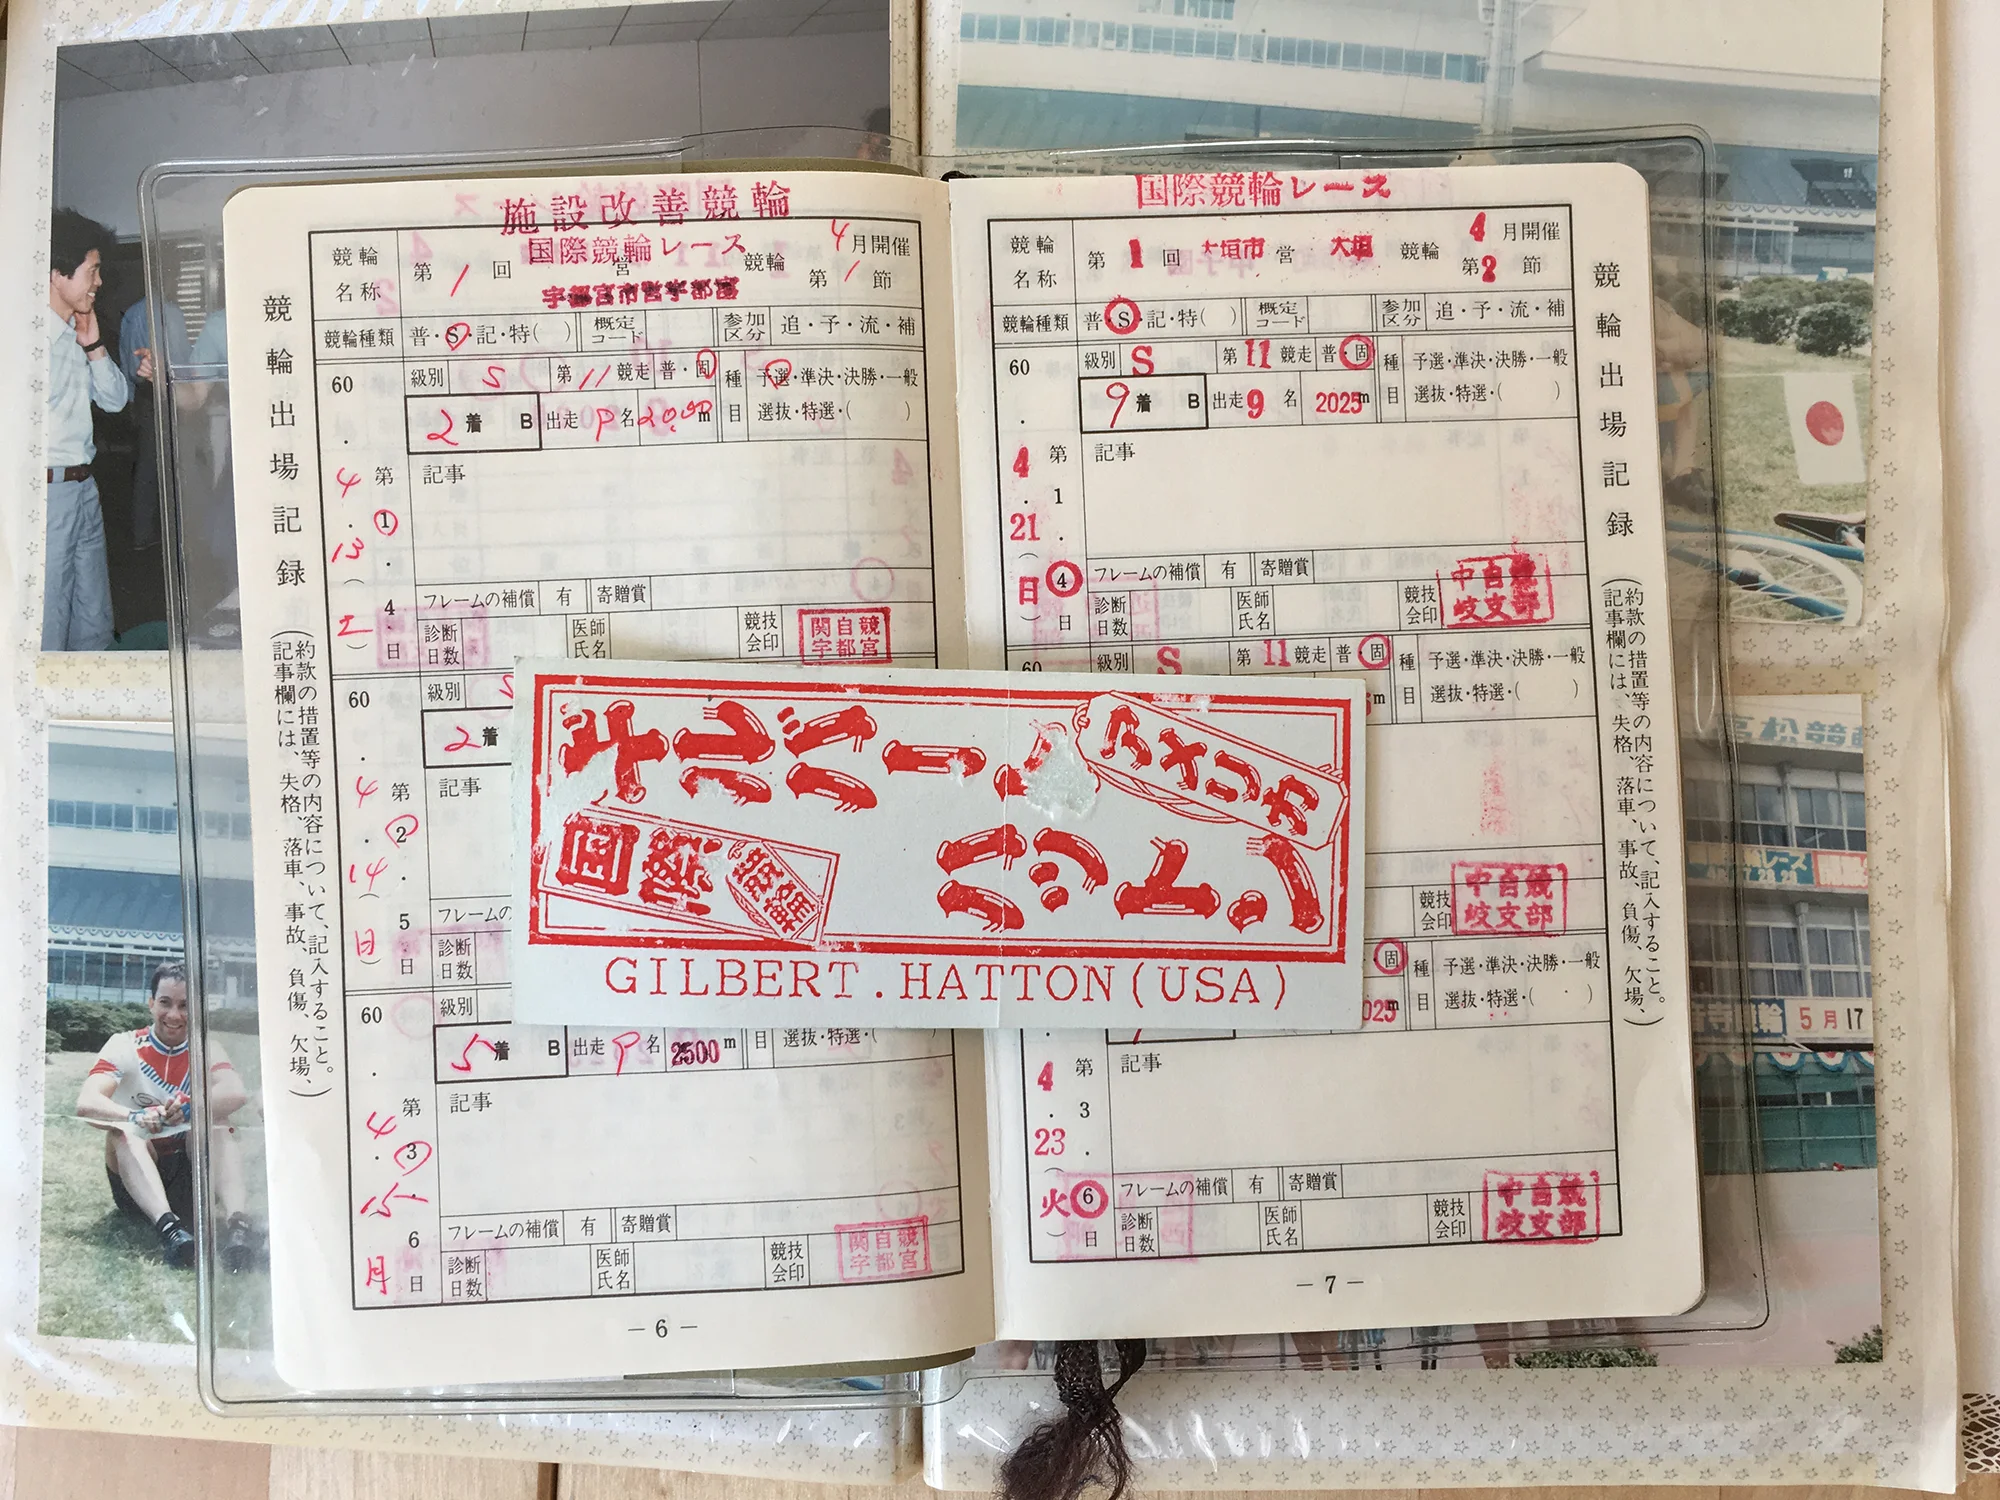 施設改善競輪
国際競輪レース
競輪名称 第1回 営 競輪 4月開催 第1節
宇都宮市営宇都宮
競輪種類 普・S・記・特( ) 概定コード 参加区分 追・予・流・補
60 級別 S 第11競走 普・固 種目 予選・準決・決勝・一般
2着 B 出走9名 2025m 選抜・特選・( )
4.13(土) 第1.4日 記事
フレームの補償 有 寄贈賞
診断日数 医師氏名 競技会印 関自競宇都宮
60 級別 S
2着
4.14(日) 第2.5日 記事
フレームの
診断日数
60 級別
5着 B 出走9名 2500m 目 選抜・特選・(
4.15月 第3.6日 記事
フレームの補償 有 寄贈賞
診断日数 医師氏名 競技会印 関自競宇都宮
競輪出場記録
(約款の措置等の内容について、記入すること。
記事欄には、失格、落車、事故、負傷、欠場、)
— 6 —
国際競輪レース
競輪名称 第1回 大垣市営 大垣競輪 4月開催 第2節
競輪種類 普・S・記・特( ) 概定コード 参加区分 追・予・流・補
60 級別 S 第11競走 普・固 種目 予選・準決・決勝・一般
9着 B 出走9名 2025m 選抜・特選・( )
4.21(日) 第1.4日 記事
フレームの補償 有 寄贈賞
診断日数 医師氏名 競技会印 中自競岐支部
60 級別 S 第11競走 普・固 種目 予選・準決・決勝・一般
m 選抜・特選・( )
競技会印 中自競岐支部
固 種目 予選・準決・決勝・一般
025m 選抜・特選・( )
4.23(火) 第3.6日 記事
フレームの補償 有 寄贈賞
診断日数 医師氏名 競技会印 中自競岐支部
競輪出場記録
(約款の措置等の内容について、記入すること。
記事欄には、失格、落車、事故、負傷、欠場、)
— 7 —
ギルバート
アメリカ
国際競輪
ハットン
GILBERT.HATTON(USA)
輪レース
5月17